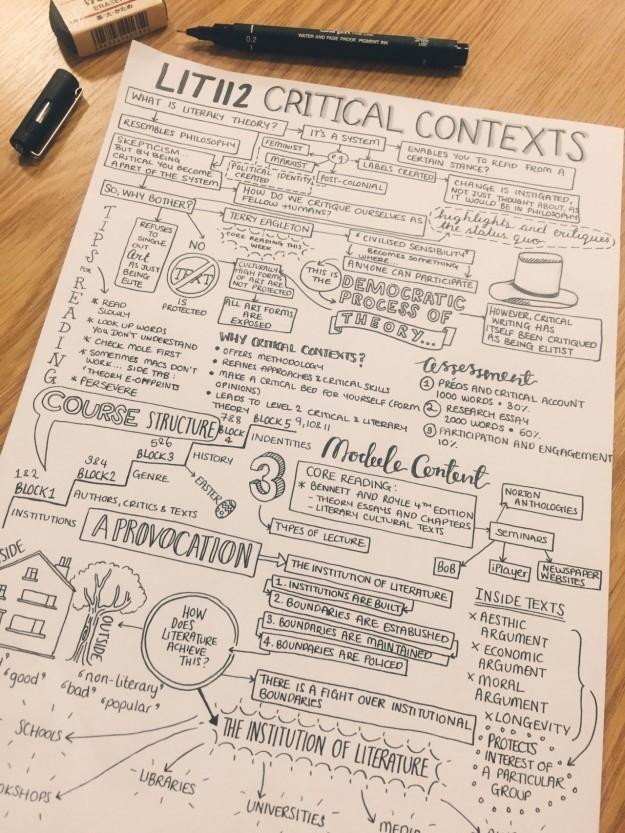 0.2
WATER AND FADE PROOF, PIGMENT INK
LIT112 CRITICAL CONTEXTS
WHAT IS LITERARY THEORY?
IT'S A SYSTEM
ENABLES YOU TO READ FROM A
CERTAIN STANCE?
RESEMBLES PHILOSOPHY
FEMINIST
MARXIST
eg
LABELS CREATED
POST-COLONIAL
SKEPTICISM...
BUT BY BEING
CRITICAL YOU BECOME
A PART OF THE SYSTEM
POLITICAL IDENTITY
CREATED
CHANGE IS INSTIGATED,
NOT JUST THOUGHT ABOUT, AS
IT WOULD BE IN PHILOSOPHY
SO, WHY BOTHER?
HOW DO WE CRITIQUE OURSELVES AS
FELLOW HUMANS?
highlights and critiques
the status quo
TIPS FOR READING
REFUSES
TO
SINGLE
OUT
Art
AS JUST
BEING
ELITE
NO
TEXT
IS
PROTECTED
TERRY EAGLETON
CORE READING THIS
WEEK
CULTURALLY
HIGH FORMS
OF ART ARE
NOT PROTECTED
ALL ART FORMS
ARE
EXPOSED
"CIVILISED SENSIBILITY"
BECOMES SOMETHING
WHERE...
ANYONE CAN PARTICIPATE
THIS IS
THE
DEMOCRATIC
PROCESS OF
THEORY...
HOWEVER, CRITICAL
WRITING HAS
ITSELF BEEN CRITIQUED
AS BEING ELITIST
* READ
SLOWLY
* LOOK UP WORDS
YOU DON'T UNDERSTAND
* CHECK MOLE FIRST
* SOMETIMES MACS DON'T
WORK... SIDE TAB:
'THEORY E-OFFPRINTS
* PERSEVERE
WHY CRITICAL CONTEXTS?
• OFFERS METHODOLOGY
• REFINES APPROACHES & CRITICAL SKILLS
• MAKE A CRITICAL BED FOR YOURSELF (FORM
OPINIONS)
• LEADS TO LEVEL 2 CRITICAL & LITERARY
THEORY
assessment
1 PRÉOS AND CRITICAL ACCOUNT
1000 WORDS • 30%
2 RESEARCH ESSAY
2000 WORDS • 60%
3 PARTICIPATION AND ENGAGEMENT
10%
COURSE STRUCTURE
1&2
BLOCK1
INSTITUTIONS
3&4
BLOCK2
AUTHORS, CRITICS & TEXTS
5&6
BLOCK3
GENRE
7&8
BLOCK
4
HISTORY
BLOCK5 9,10&11
INDENTITIES
EASTER
Module Content
3
CORE READING:
* BENNETT AND ROYLE 4TH EDITION
- THEORY ESSAYS AND CHAPTERS
- LITERARY CULTURAL TEXTS
TYPES OF LECTURE
NORTON
ANTHOLOGIES
SEMINARS
BoB
iPlayer
NEWSPAPER
WEBSITES
A PROVOCATION
THE INSTITUTION OF LITERATURE
1. INSTITUTIONS ARE BUILT
2. BOUNDARIES ARE ESTABLISHED
3. BOUNDARIES ARE MAINTAINED
4. BOUNDARIES ARE POLICED
THERE IS A FIGHT OVER INSTITUTIONAL
BOUNDARIES
INSIDE TEXTS
× AESTHIC
ARGUMENT
× ECONOMIC
ARGUMENT
× MORAL
ARGUMENT
× LONGEVITY
PROTECTS
INTEREST OF
A PARTICULAR
GROUP
SIDE
OUTSIDE
HOW
DOES
LITERATURE
ACHIEVE
THIS?
"good"
"non-literary"
"bad" "popular"
THE INSTITUTION OF LITERATURE
SCHOOLS
OKSHOPS
LIBRARIES
UNIVERSITIES
MEDIA